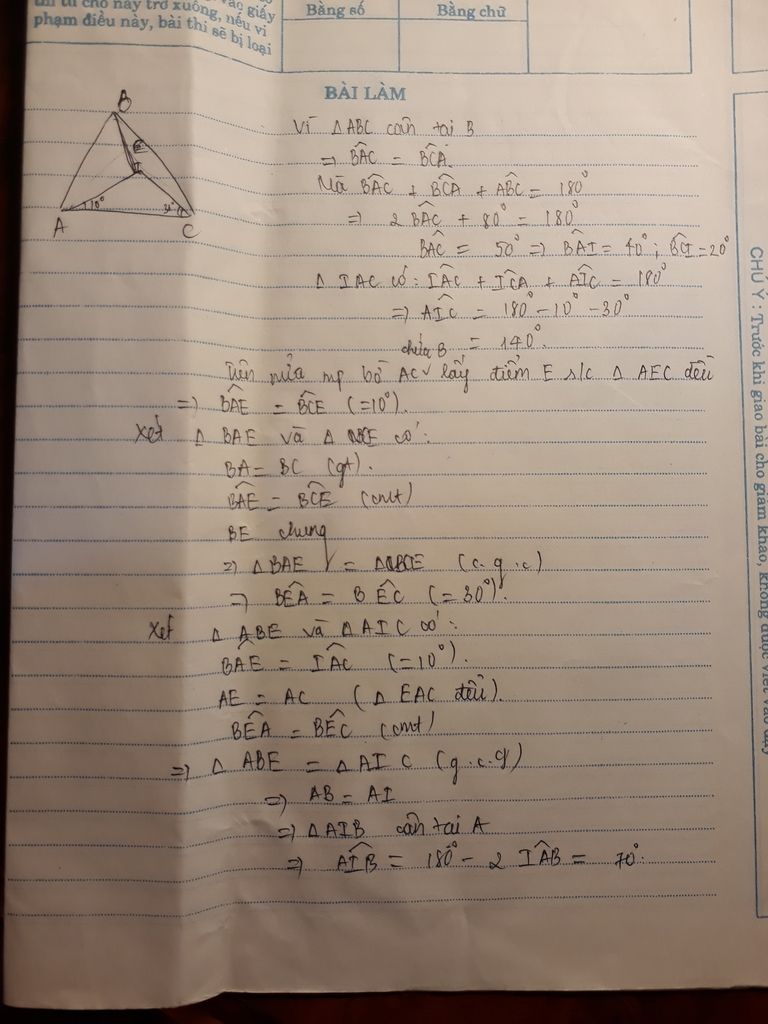 vào giấy
thi từ chỗ này trở xuống, nếu vi
phạm điều này, bài thi sẽ bị loại
Bằng số
Bằng chữ
BÀI LÀM
B
I
10°
A
C
Vì Δ ABC cân tại B
=> BÂC = BĈA.
Mà BÂC + BĈA + AB̂C = 180°
=> 2 BÂC + 80° = 180°
BÂC = 50° => BÂI = 40° ; BĈI = 20°
Δ IAC có: IÂC + IĈA + AÎC = 180°
=> AÎC = 180° - 10° - 30°
= 140°.
chứa B
Trên nửa mp bờ AC ✓ lấy điểm E s/c Δ AEC đều
=> BÂE = BĈE (=10°).
Xét Δ BAE và Δ BCE có:
BA = BC (gt).
BÂE = BĈE (cmt)
BE chung
=> Δ BAE = Δ BCE (c.g.c)
=> BÊA = BÊC (=30°).
Xét Δ ABE và Δ AIC có:
BÂE = IÂC (=10°).
AE = AC (Δ EAC đều).
BÊA = BÊC (cmt)
=> Δ ABE = Δ AIC (g.c.g)
=> AB = AI
=> Δ AIB cân tại A
=> AÎB = 180° - 2 IÂB = 70°.
CHÚ Ý : Trước khi giao bài cho giám khảo, không được viết vào đây